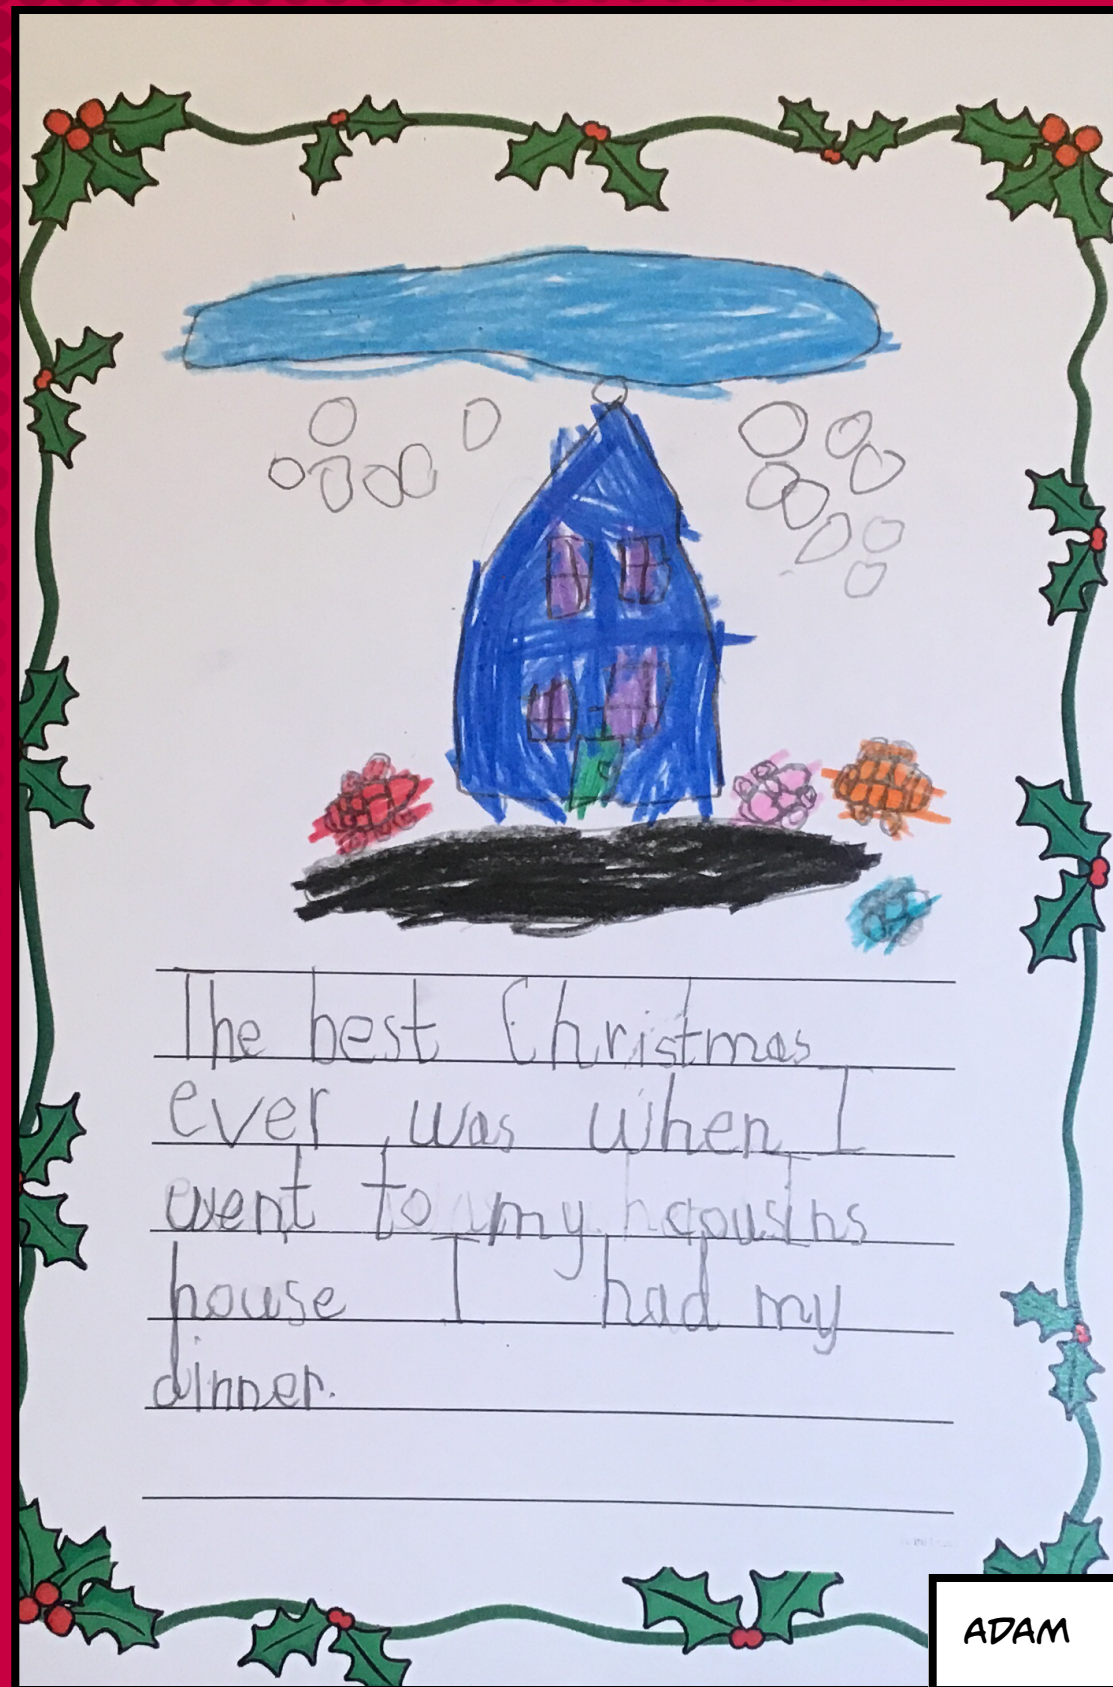 The best Christmas
ever was when I
went to my cousins
house I had my
dinner.
ADAM